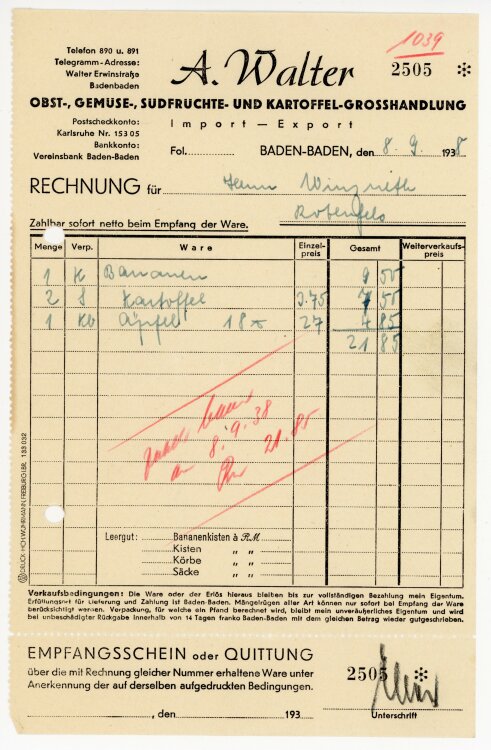 1039
Telefon 890 u. 891
Telegramm-Adresse:
Walter Erwinstraße
Badenbaden
A. Walter
2505 ✻
OBST-, GEMÜSE-, SÜDFRÜCHTE- UND KARTOFFEL-GROSSHANDLUNG
Postscheckkonto:
Karlsruhe Nr. 15305
Bankkonto:
Vereinsbank Baden-Baden
Import — Export
Fol. BADEN-BADEN, den 8. 9. 1938
RECHNUNG für Herrn
Rotenfels
Zahlbar sofort netto beim Empfang der Ware.
Menge Verp. Ware Einzelpreis Gesamt Weiterverkaufspreis
1 K Bananen 9 50
2 S Kartoffel 3.75 7 50
1 Kb Äpfel 18 27 4 85
21 85
8.9.38
21.85
Leergut: Bananenkisten à R.M.
Kisten " "
Körbe " "
Säcke " "
DRUCK: HCH. WUHRMANN, FREIBURG I. BR. 133 032
Verkaufsbedingungen: Die Ware oder der Erlös hieraus bleiben bis zur vollständigen Bezahlung mein Eigentum.
Erfüllungsort für Lieferung und Zahlung ist Baden-Baden. Mängelrügen aller Art können nur sofort bei Empfang der Ware
berücksichtigt werden. Verpackung, für welche ein Pfand berechnet wird, bleibt mein unveräußerliches Eigentum und wird
bei unbeschädigter Rückgabe innerhalb von 14 Tagen franko Baden-Baden mit dem gleichen Betrag wieder gutgeschrieben.
EMPFANGSSCHEIN oder QUITTUNG
über die mit Rechnung gleicher Nummer erhaltene Ware unter
Anerkennung der auf derselben aufgedruckten Bedingungen.
2505 ✻
, den 193
Unterschrift